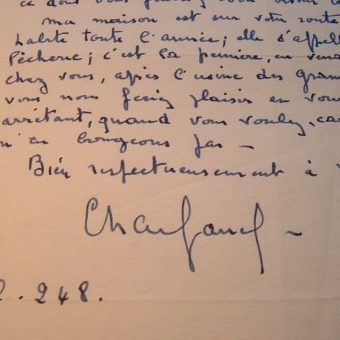 ce dont vous
ma maison est sur votre route
habite toute l'année; elle s'appell
Pêcherie; c'est la première, en vena
chez vous, après l'usine des gran
vous nous feriez plaisir en vou
arrêtant, quand vous voulez, ca
n'en bougeons pas —
Bien respectueusement à v
. 248.